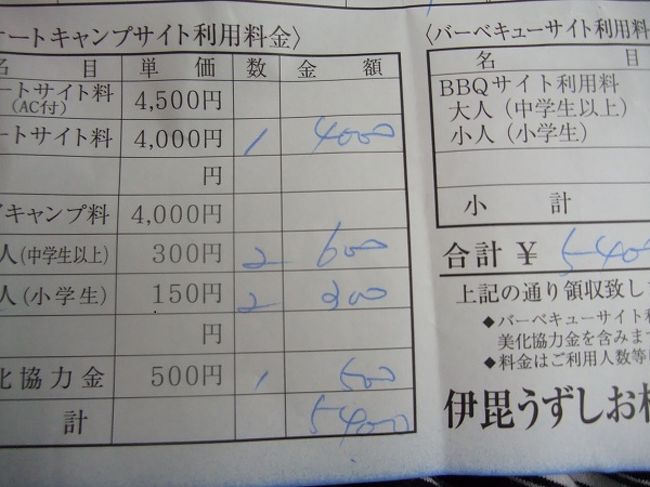 ートキャンプサイト利用料金〉
名 目 単価 数 金額
ートサイト料 (AC付) 4,500円
ートサイト料 4,000円 1 4000
円
イキャンプ料 4,000円
人(中学生以上) 300円 2 600
人(小学生) 150円 2 300
円
化協力金 500円 1 500
計 5400
〈バーベキューサイト利用料
名
BBQサイト利用料
大人(中学生以上)
小人(小学生)
小計
合計 ¥ 5400
上記の通り領収致し
◆バーベキューサイト利
美化協力金を含みま
◆料金はご利用人数等
伊毘うずしお